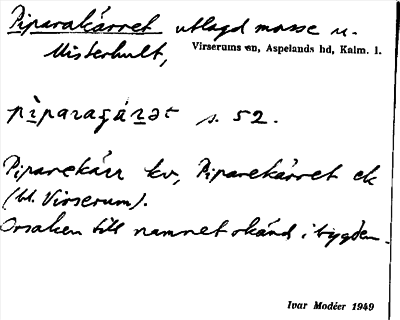 Piparakärret utlagd mosse u.
Misterhult, Virserums sn, Aspelands hd, Kalm. l.
pìparaɕár̲ət s. 52.
Piparekärr kv, Piparekärret ek
(bl. Virserum).
Orsaken till namnet okänd i bygden.
Ivar Modéer 1949